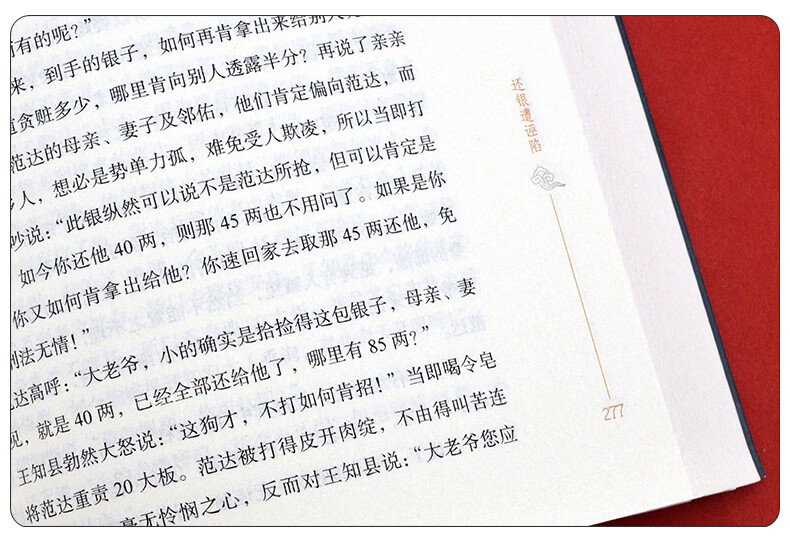 有的呢？”
来，到手的银子，如何再肯拿出来给别人
贪赃多少，哪里肯向别人透露半分？再说了亲亲
范达的母亲、妻子及邻佑，他们肯定偏向范达，而
人，想必是势单力孤，难免受人欺凌，所以当即打
吵说：“此银纵然可以说不是范达所抢，但可以肯定是
如今你还他 40 两，则那 45 两也不用问了。如果是你
你又如何肯拿出给他？你速回家去取那 45 两还他，免
刑法无情！”
达高呼：“大老爷，小的确实是拾捡得这包银子，母亲、妻
见，就是 40 两，已经全部还给他了，哪里有 85 两？”
王知县勃然大怒说：“这狗才，不打如何肯招！”当即喝令皂
将范达重责 20 大板。范达被打得皮开肉绽，不由得叫苦连
毫无怜悯之心，反而对王知县说：“大老爷您应
还银遭诬陷
277